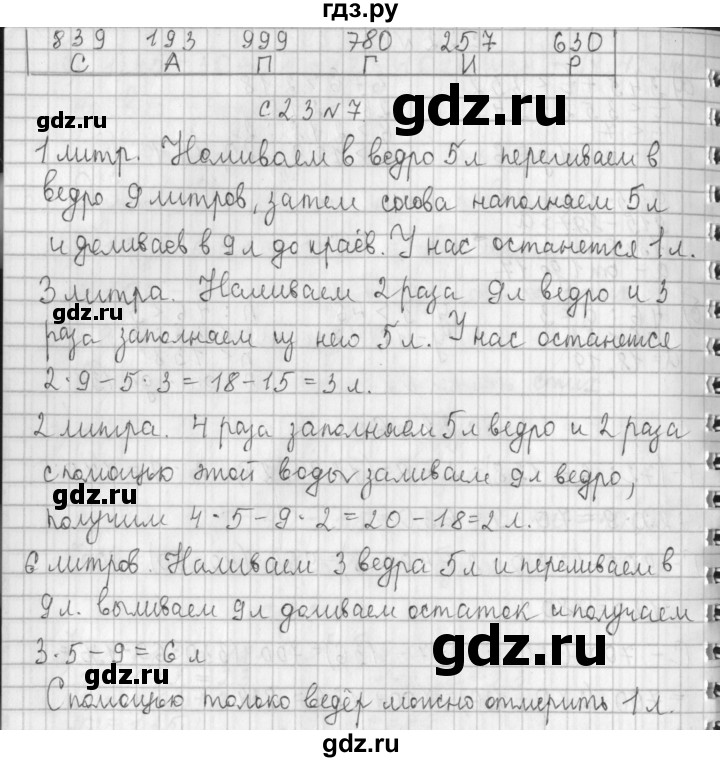 гдз.ру
839 193 999 780 257 630
С А П Г И Р
с 23 № 7
gdz.ru gdz.ru
1 литр. Наливаем в ведро 5л переливаем в
ведро 9 литров, затем снова наполняем 5л
gdz.ru gdz.ru
и доливаев в 9л до краёв. У нас останется 1л.
3 литра. Наливаем 2 раза 9л ведро и 3
gdz.ru
раза заполняем из него 5л. У нас останется
2·9-5·3=18-15=3л.
2 литра. 4 раза заполняем 5л ведро и 2 раза
с помощью этой воды заливаем 9л ведро,
gdz.ru
получим 4·5-9·2=20-18=2л.
6 литров. Наливаем 3 ведра 5л и переливаем в
gdz.ru
9л. выливаем 9л доливаем остаток и получаем
3·5-9=6л
gdz.ru
gdz.ru
С помощью только ведёр можно отмерить 1л.
gdz.ru